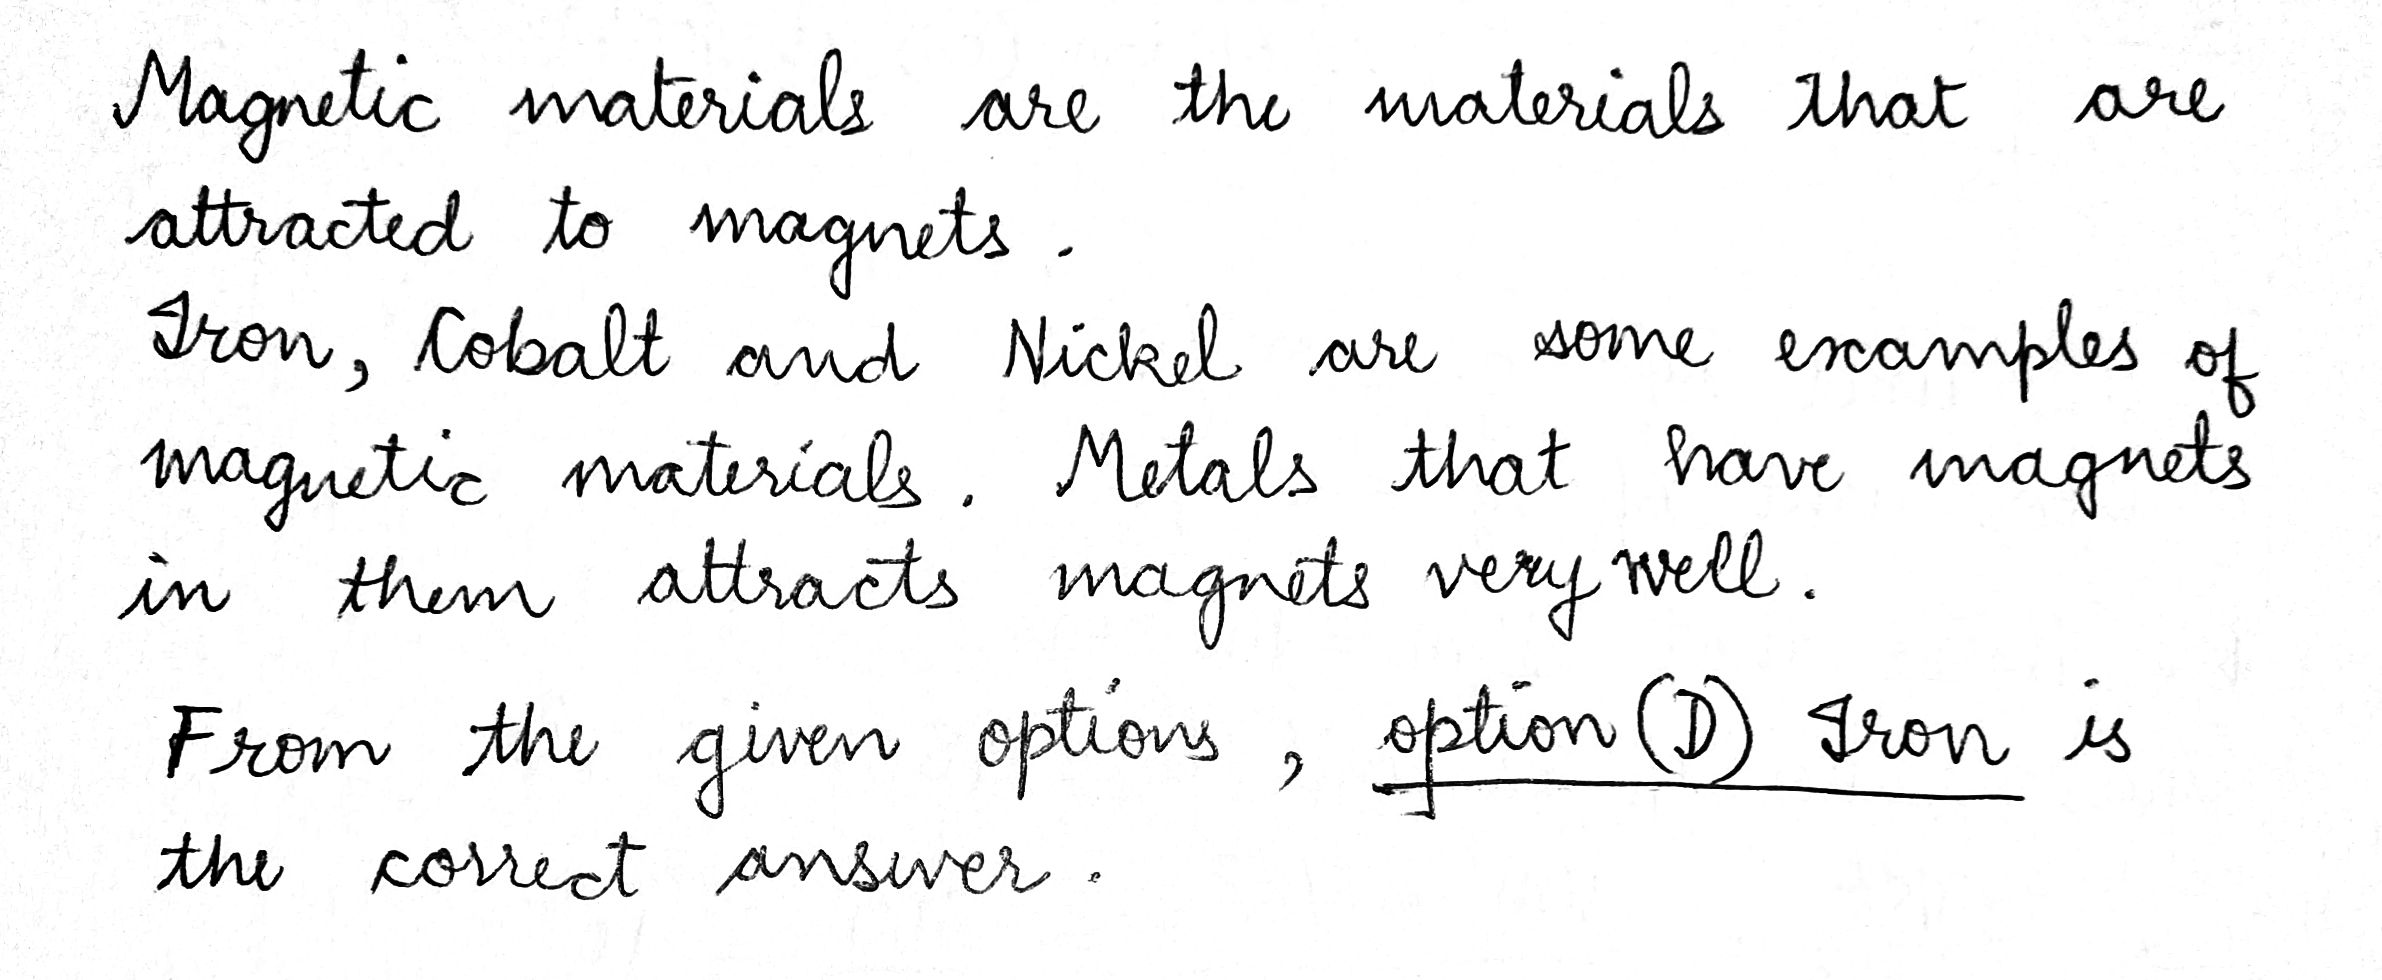 Magnetic materials are the materials that are
attracted to magnets.
Iron, Cobalt and Nickel are some examples of
magnetic materials. Metals that have magnets
in them attracts magnets very well.
From the given options, option (D) Iron is
the correct answer.